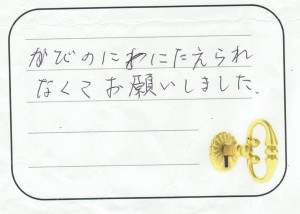 かびのにわにたえられ
なくてお願いしました.